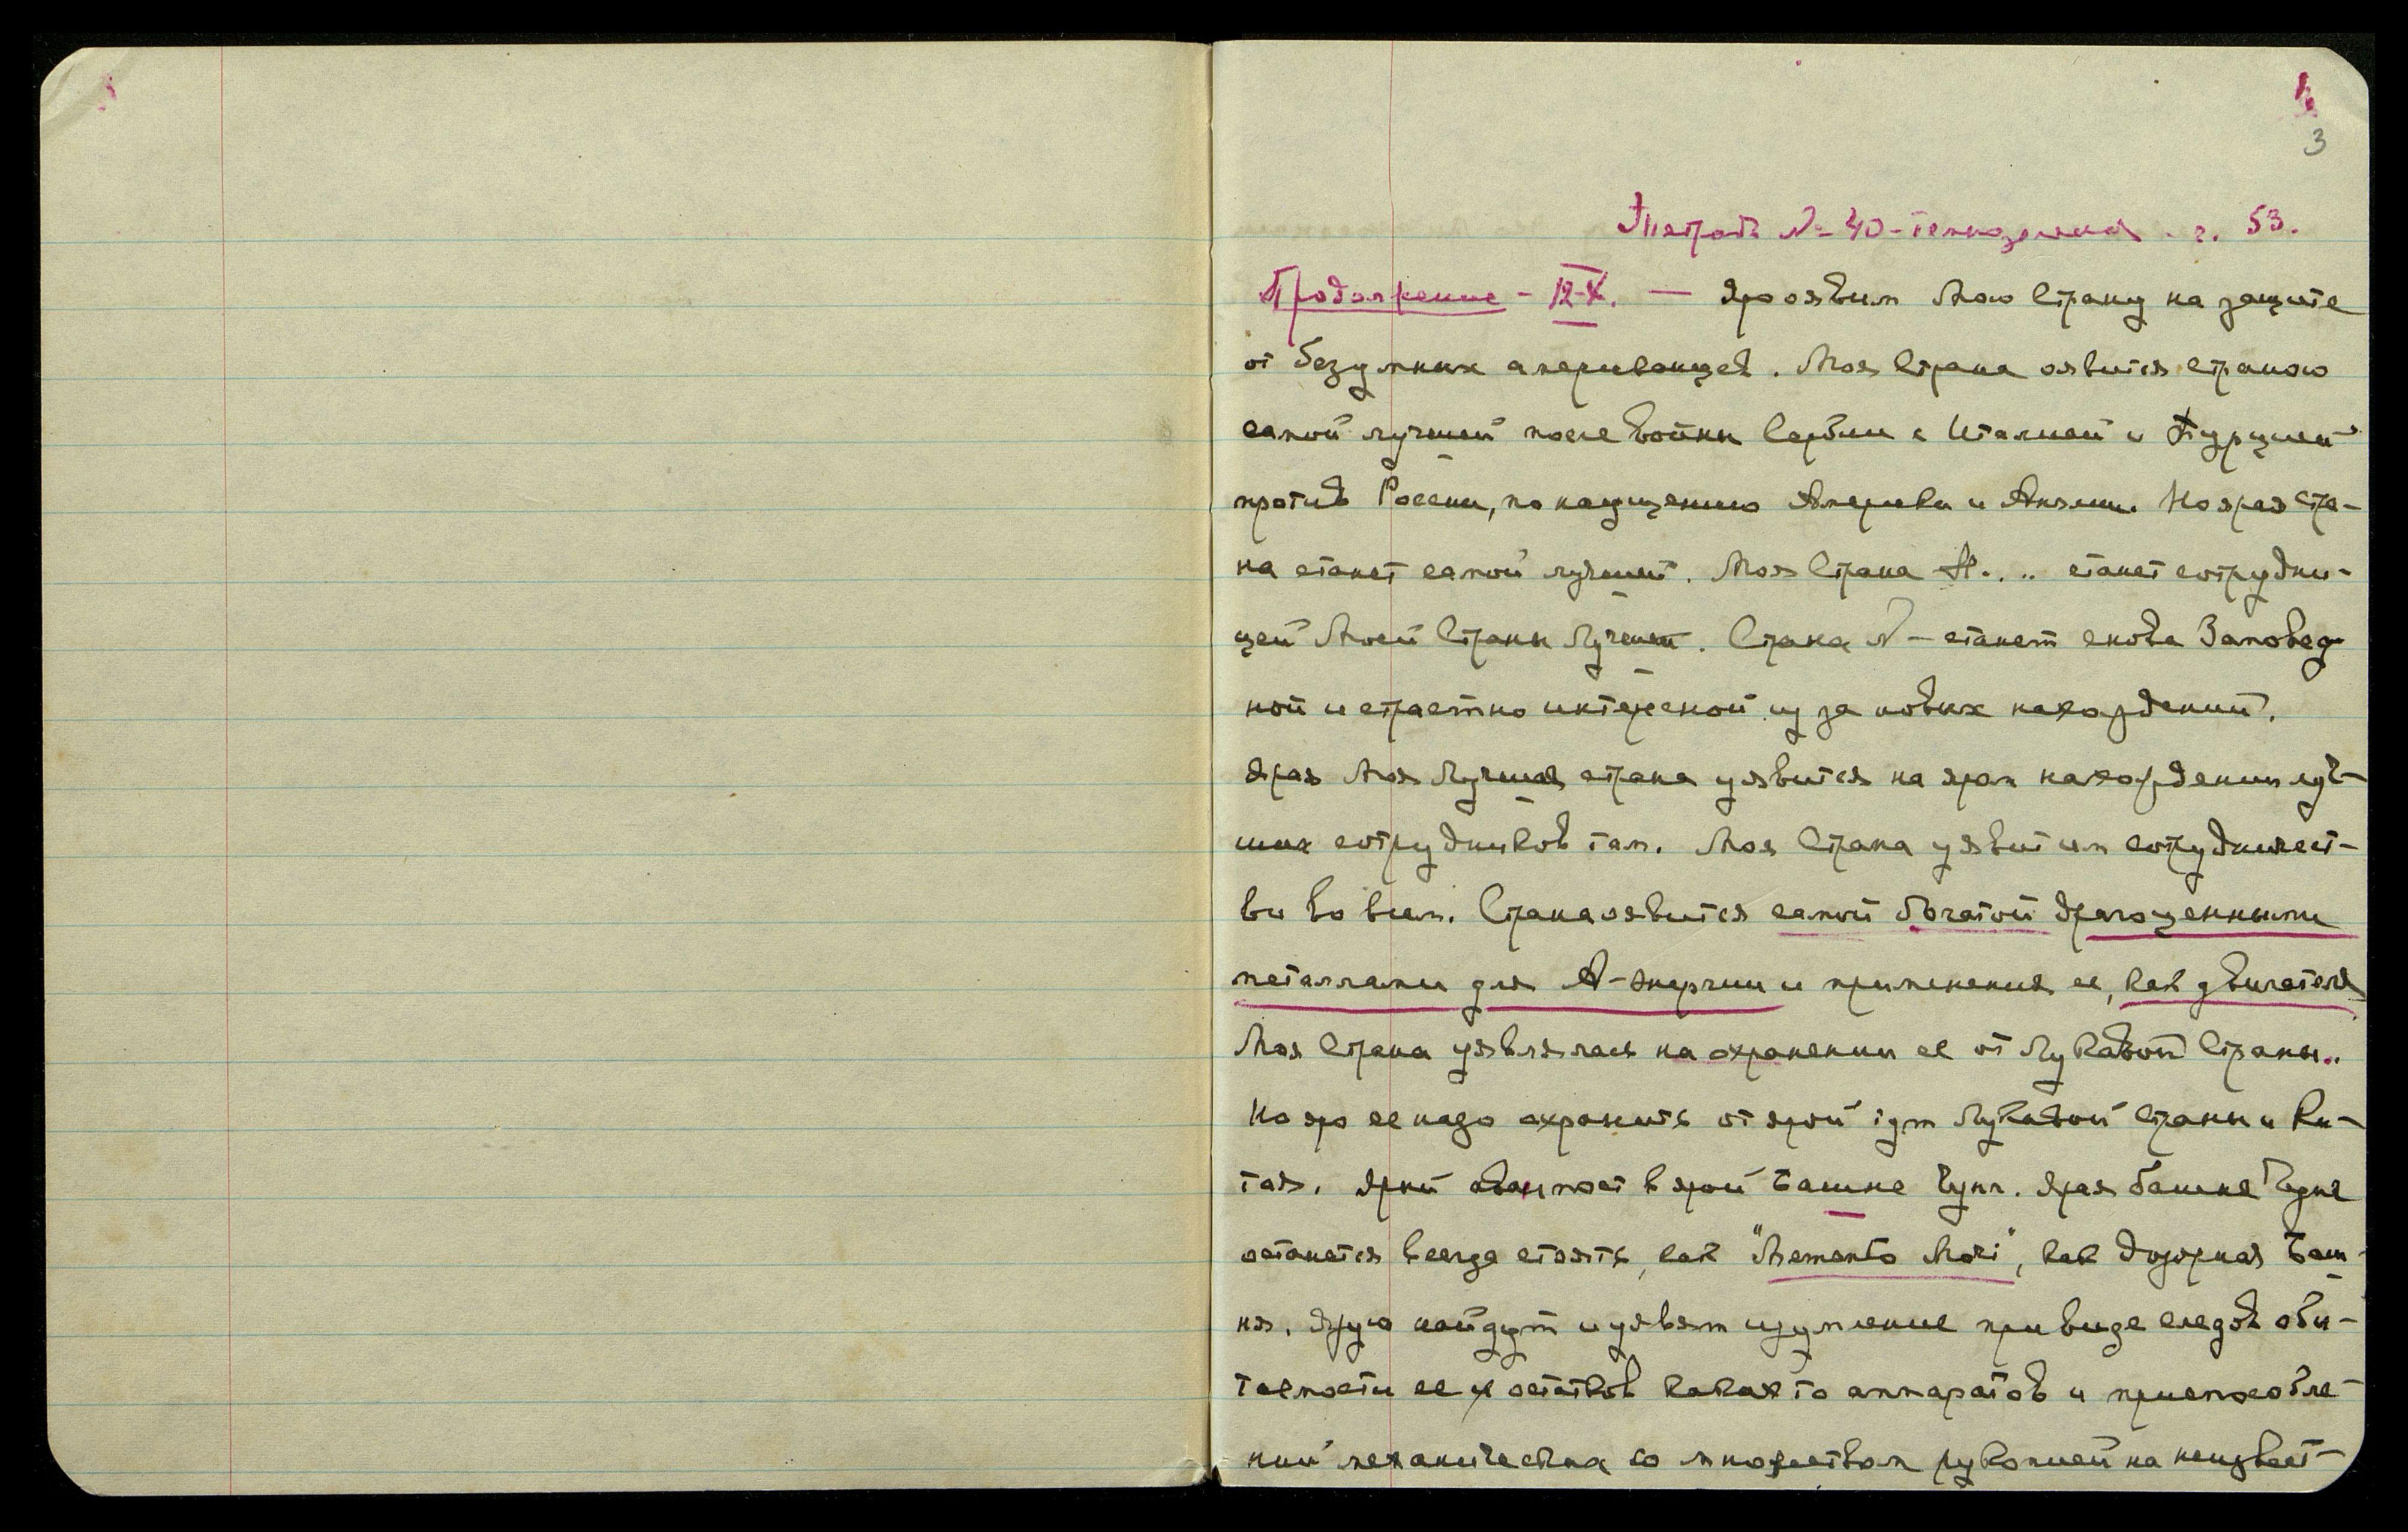 3
Тетрадь № 40 - г. 53.
Продолжение - 12-X. — Яро оявим Мою Страну на защите
от безумных американцев. Моя Страна оявится страною
самой лучшей после войны Сербии с Италией и Турцией
против России, по наущению Америки и Англии. Но ярая Стра-
на станет самой лучшей. Моя Страна N... станет сотрудни-
цей Моей Страны Лучшей. Страна N — станет снова Заповед
ной и страстно интересной из за новых нахождений.
Ярая Моя Лучшая страна уявится на яром нахождении луч-
ших сотрудников там. Моя Страна уявит им сотрудничест-
во во всем. Страна оявится самой богатой драгоценными
металлами для А-энергии и применения ее, как двигателя
Моя Страна уявлялась на охранении ее от Лукавой Страны..
Но яро ее надо охранить от ярой Лукавой Страны и Ки-
тая. Ярый аванпост в ярой Башне Чунг. Ярая башня Чунг
останется всегда стоять, как "Memento Mori", как дозорная Баш-
ня. Ярую найдут и уявят изумление при виде следов оби-
таемости ее и остатков каких то аппаратов и приспособле-
ний механических со множеством рукописей на неизвест-